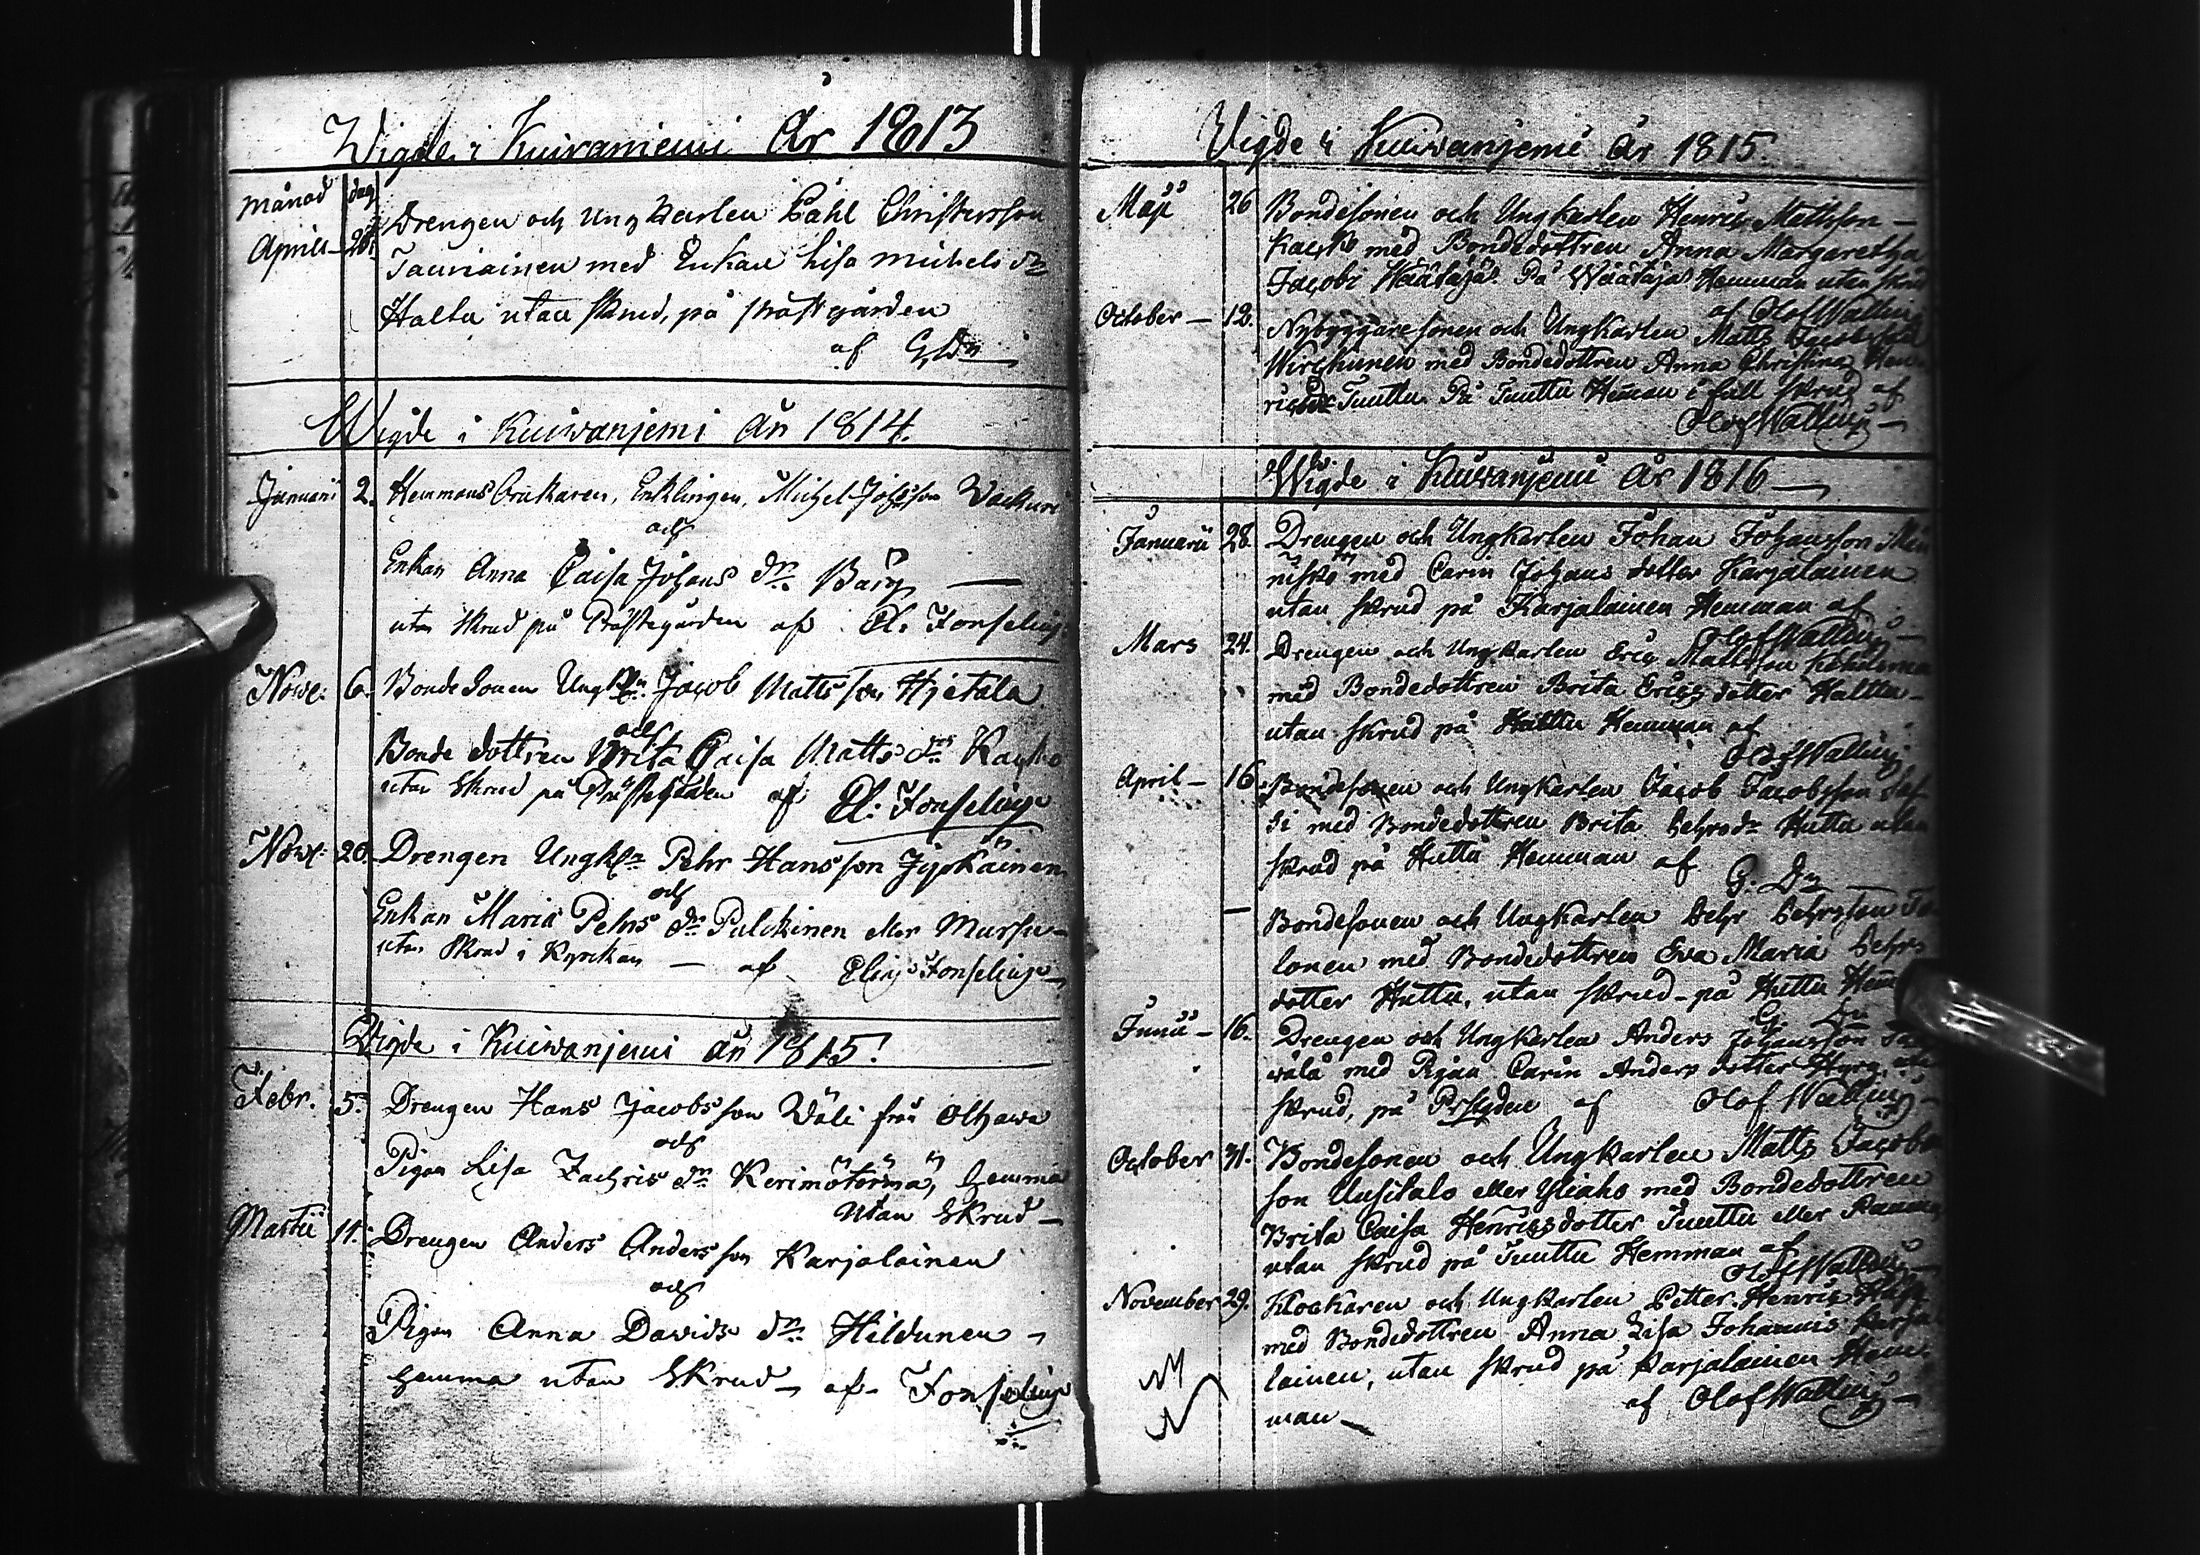 Wigde i Kuivaniemi År 1813
Månad dag
Aprill 20. Drengen och Ungkarlen Påhl Christersson
Tauriainen med Enkan Lisa Michels dr
Haltu utan skrud, på prästgården
af GDn
Wigde i Kuiwanjemi År 1814.
Januarii 2. Hemmans brukaren, Enklingen, Michel Johsson Wackuri
och
Enkan Anna Caisa Johans dr.
utan skrud på Prästegården af El. Fonselius
Nove: 6. Bonde Sonen Ungkln. Jacob Mattsson Hjetala
och
Bonde dottren Brita Caisa Matts dr Kaakko
utan Skrud på Prästegården af El. Fonselius
Nove: 20. Drengen Ungkln Pehr Hansson Jyskäinen
och
Enkan Maria Pehrs dr Pulckinen eller Mursu
utan Skrud i Kyrckan — af Elias Fonselius
Wigde i Kuiwanjemi år 1815.
Febr. 5. Drengen Hans Jacobsson Wäli från Olhawa
och
Pigan Lisa Zachris dr. Kerimötörmä, hemma
utan Skrud —
Martii 11. Drengen Anders Andersson Karjalainen
och
Pigan Anna Davids dr. Hildunen
hemma utan Skrud — af Fonselius
Vigde i Kuiwanjemi År 1815.
Maji 26 Bondesonen och Ungkarlen Henric Mattsson —
Kaakko med Bondedottren Anna Margaretha
Jacobi Wäätäjä. På Wäätäjä Hemman utan skrud
af Olof Walling
October — 12. Nybyggare sonen och Ungkarlen Matts Jacobsson
Wirckunen med Bondedottren Anna Christina Hen-
ricsdr Tuuttu. På Tuuttu Heman i full skrud af
Olof Walling —
Wigde i Kuiwanjemi År 1816 —
Januarii 28. Drengen och Ungkarlen Johan Johansson
med Carin Johans dotter Karjalainen
utan skrud på Karjalainen Hemman af
Olof Walling —
Mars 24. Drengen och Ungkarlen Eric Mattsson
med Bondedottren Brita Ericsdotter Haltta —
utan skrud på Haltta Hemman af
Olof Walling
April — 16. Bondesonen och Ungkarlen Jacob Jacobsson
med Bondedottren Brita Pehrsdr Huttu utan
skrud på Huttu Hemman af
G. Dn
— Bondesonen och Ungkarlen Pehr Pehrsson
lonen med Bondedottren Eva Maria Pehrs
dotter Huttu, utan skrud — på Huttu Hem
G. Dn
Junii — 16. Drengen och Ungkarlen Anders Johansson
wälä med Pigan Carin Anders dotter Hyry, utan
skrud, på Prstgden af Olof Walling —
October 31. Bondesonen och Ungkarlen Matts Jacobs
son Uusitalo eller Yliaho med Bondedottren
Brita Caisa Henricsdotter Tuuttu eller
utan skrud på Tuuttu Hemman af
Olof Walling
November 29. Klockaren och Ungkarlen Petter Henric
med Bondedottren Anna Lisa Johannis Karja-
lainen, utan skrud på Karjalainen Hem-
man — af Olof Walling —